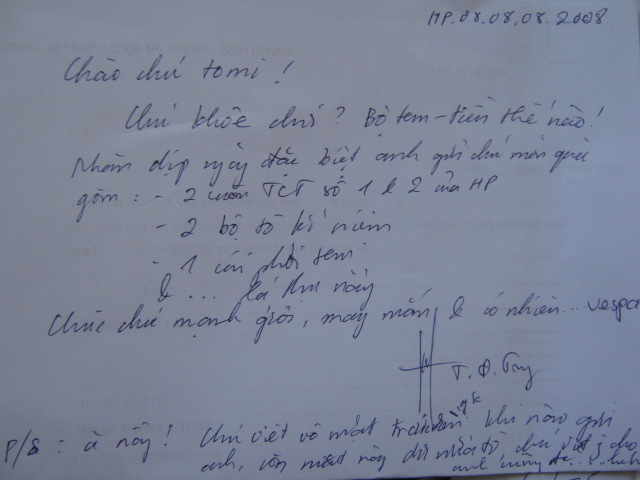 HP. 08.08.08.2008
Chào chú tomi!
Chú khỏe chứ? Bộ tem-tiền thế nào!
Nhân dịp ngày đặc biệt anh gửi chú món quà
gồm: - 2 cuốn TCT số 1 & 2 của HP
- 2 bộ tờ kỉ niệm
- 1 cái phơi tem
& ... lá thư này
Chúc chú mạnh giỏi, may mắn & có nhiên... vespa
T.Đ.
P/S: à này! Chú viết vô mặt khi nào gửi
anh, còn mặt này chú viết gì cho
anh cũng